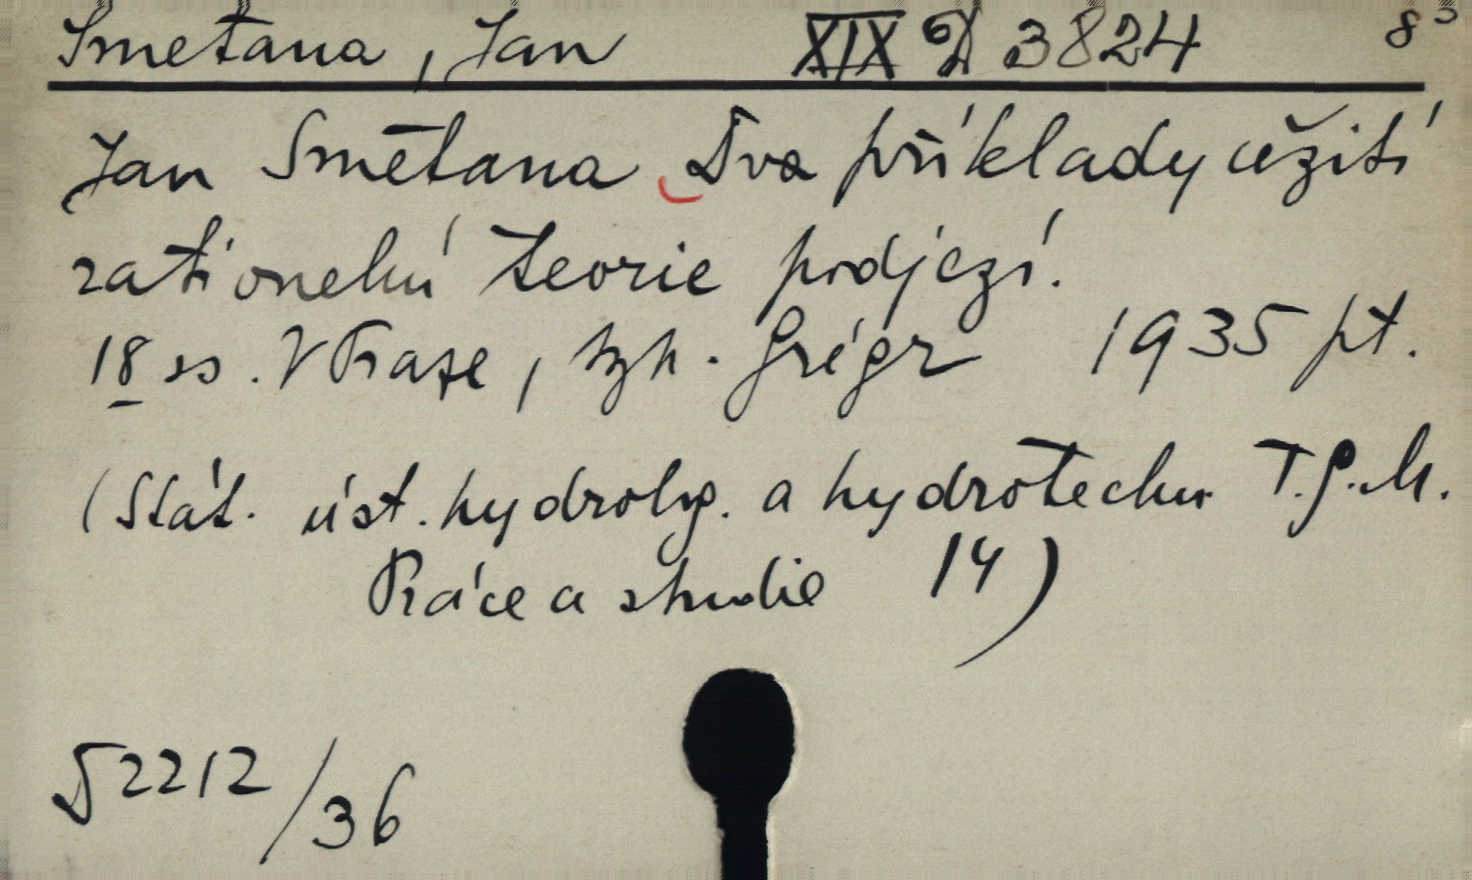 Smetana, Jan XIX D 3824 8°
Jan Smetana Dva příklady užití
rationelní teorie podjezí.
18 ss. V Praze, tzk. Grégr 1935 pt.
(Stát. úst. hydrolog. a hydrotechn. T.G.M.
Práce a studie 14)
D 2212/36